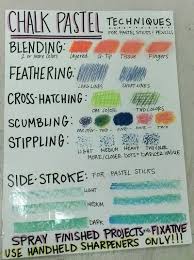 CHALK PASTEL TECHNIQUES
FOR PASTEL STICKS & PENCILS
BLENDING:
2 or More Colors
Layered Q-Tip Tissue Fingers
FEATHERING:
LONG LINES SHORT LINES
CROSS-HATCHING:
ONE COLOR TWO COLORS
SCUMBLING:
STIPPLING:
LIGHT MEDIUM HEAVY TWO COLOR
MORE/CLOSER DOTS = DARKER VALUE
SIDE-STROKE: FOR PASTEL STICKS
LIGHT
MEDIUM
DARK
SPRAY FINISHED PROJECTS W/ FIXATIVE
USE HANDHELD SHARPENERS ONLY!!!